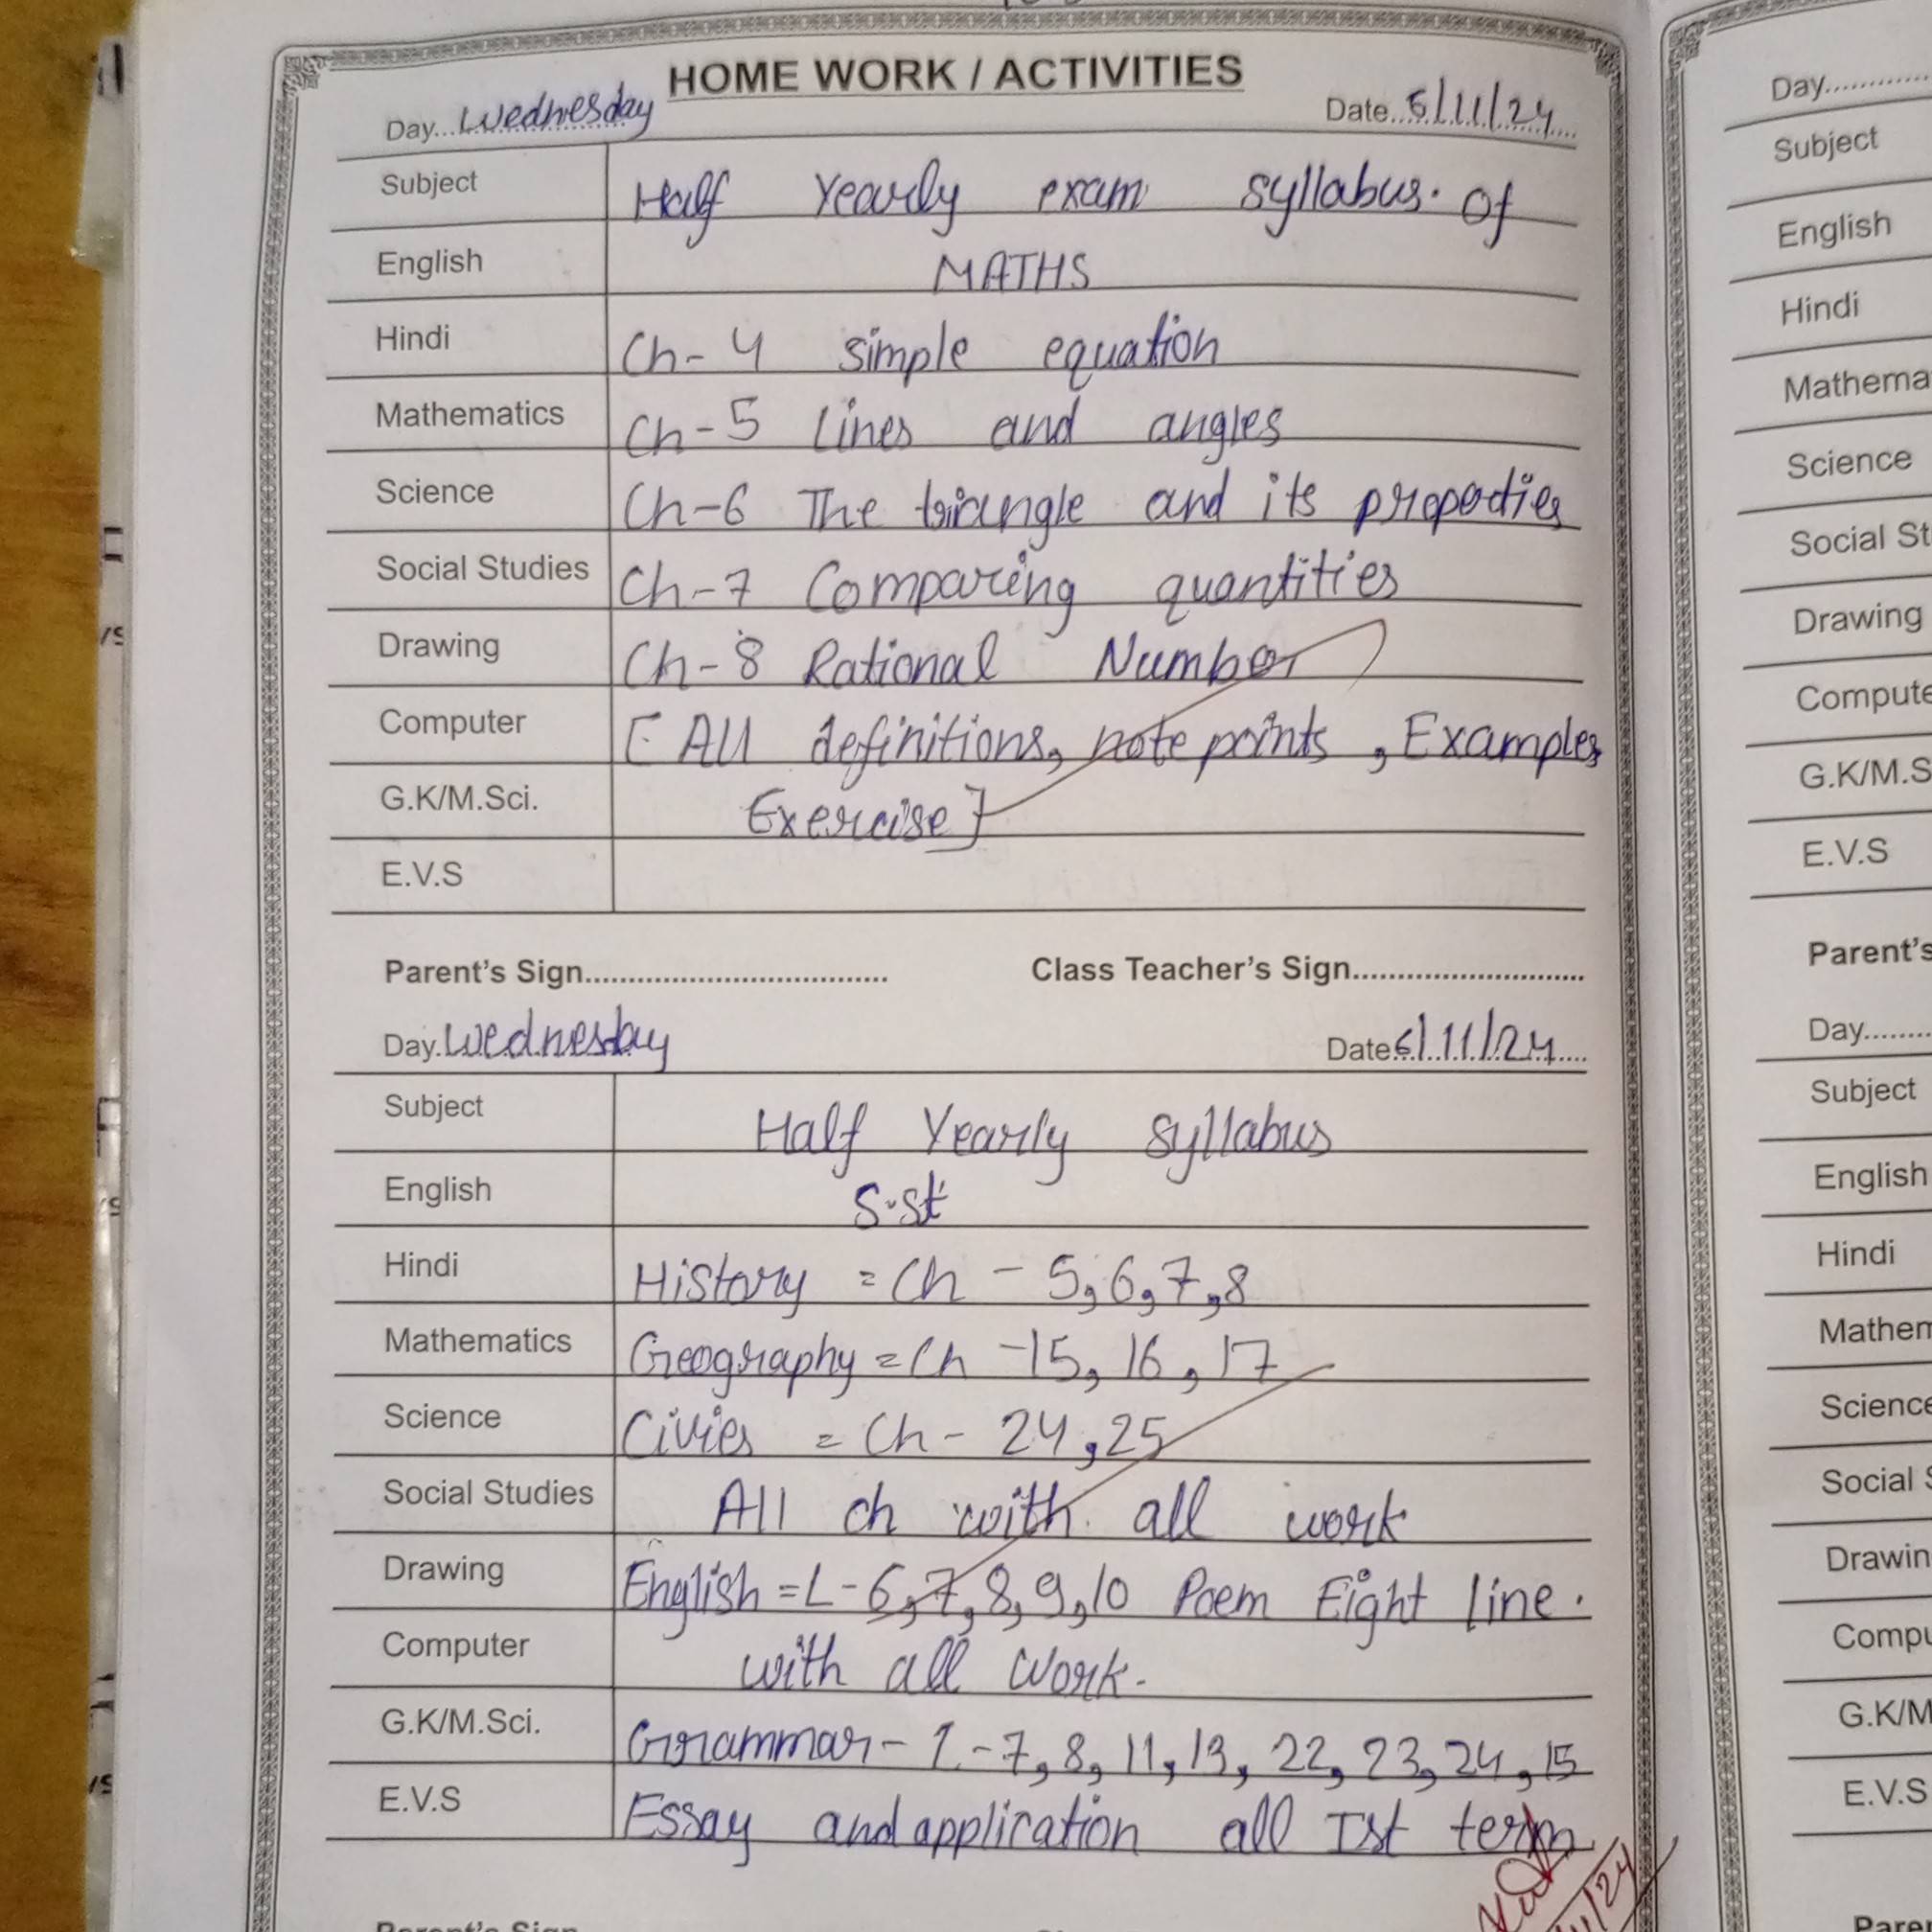 HOME WORK / ACTIVITIES
Day...Wednesday Date..5/11/24....
Subject Half Yearly exam syllabus. of
English MATHS
Hindi Ch- 4 simple equation
Mathematics Ch-5 Lines and angles
Science Ch-6 The triangle and its properties
Social Studies Ch-7 Comparing quantities
Drawing Ch-8 Rational Number
Computer [ All definitions, note points , Examples
G.K/M.Sci. Exercise ]
E.V.S
Parent's Sign................................... Class Teacher's Sign...........................
Day.Wednesday Date.6/11/24....
Subject Half Yearly syllabus
English S.st
Hindi History = Ch - 5, 6, 7, 8
Mathematics Geography = Ch -15, 16, 17
Science Civies = Ch- 24, 25
Social Studies All ch with all work
Drawing English = L-6, 7, 8, 9, 10 Poem Eight line.
Computer with all work.
G.K/M.Sci. Grammar- 1.-7, 8, 11, 13, 22, 23, 24, 15
E.V.S Essay and application all Ist term
Day............
Subject
English
Hindi
Mathema
Science
Social St
Drawing
Compute
G.K/M.S
E.V.S
Parent's
Day........
Subject
English
Hindi
Mathem
Science
Social S
Drawin
Compu
G.K/M
E.V.S